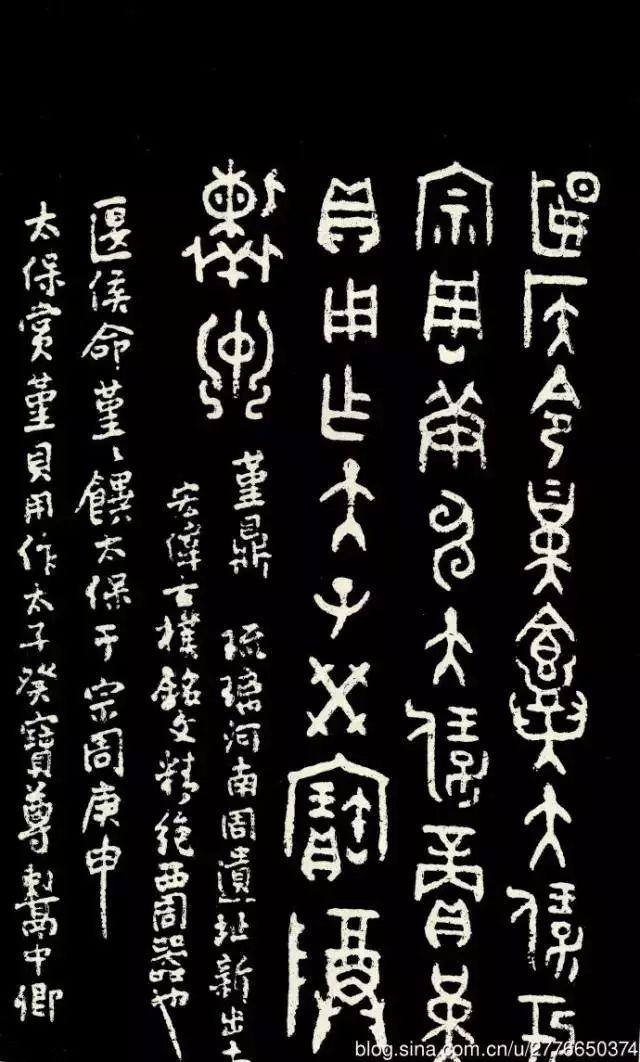 匽侯令堇饎大保于
宗周庚申大保賞堇
貝用乍大子癸寶尊
堇鼎 琉璃河南周遺址新出土
宏偉古樸銘文精絕西周器也
匽侯命堇〻饌太保于宗周庚申
太保賞堇貝用作太子癸寶尊中卿
blog.sina.com.cn/u/2776650374